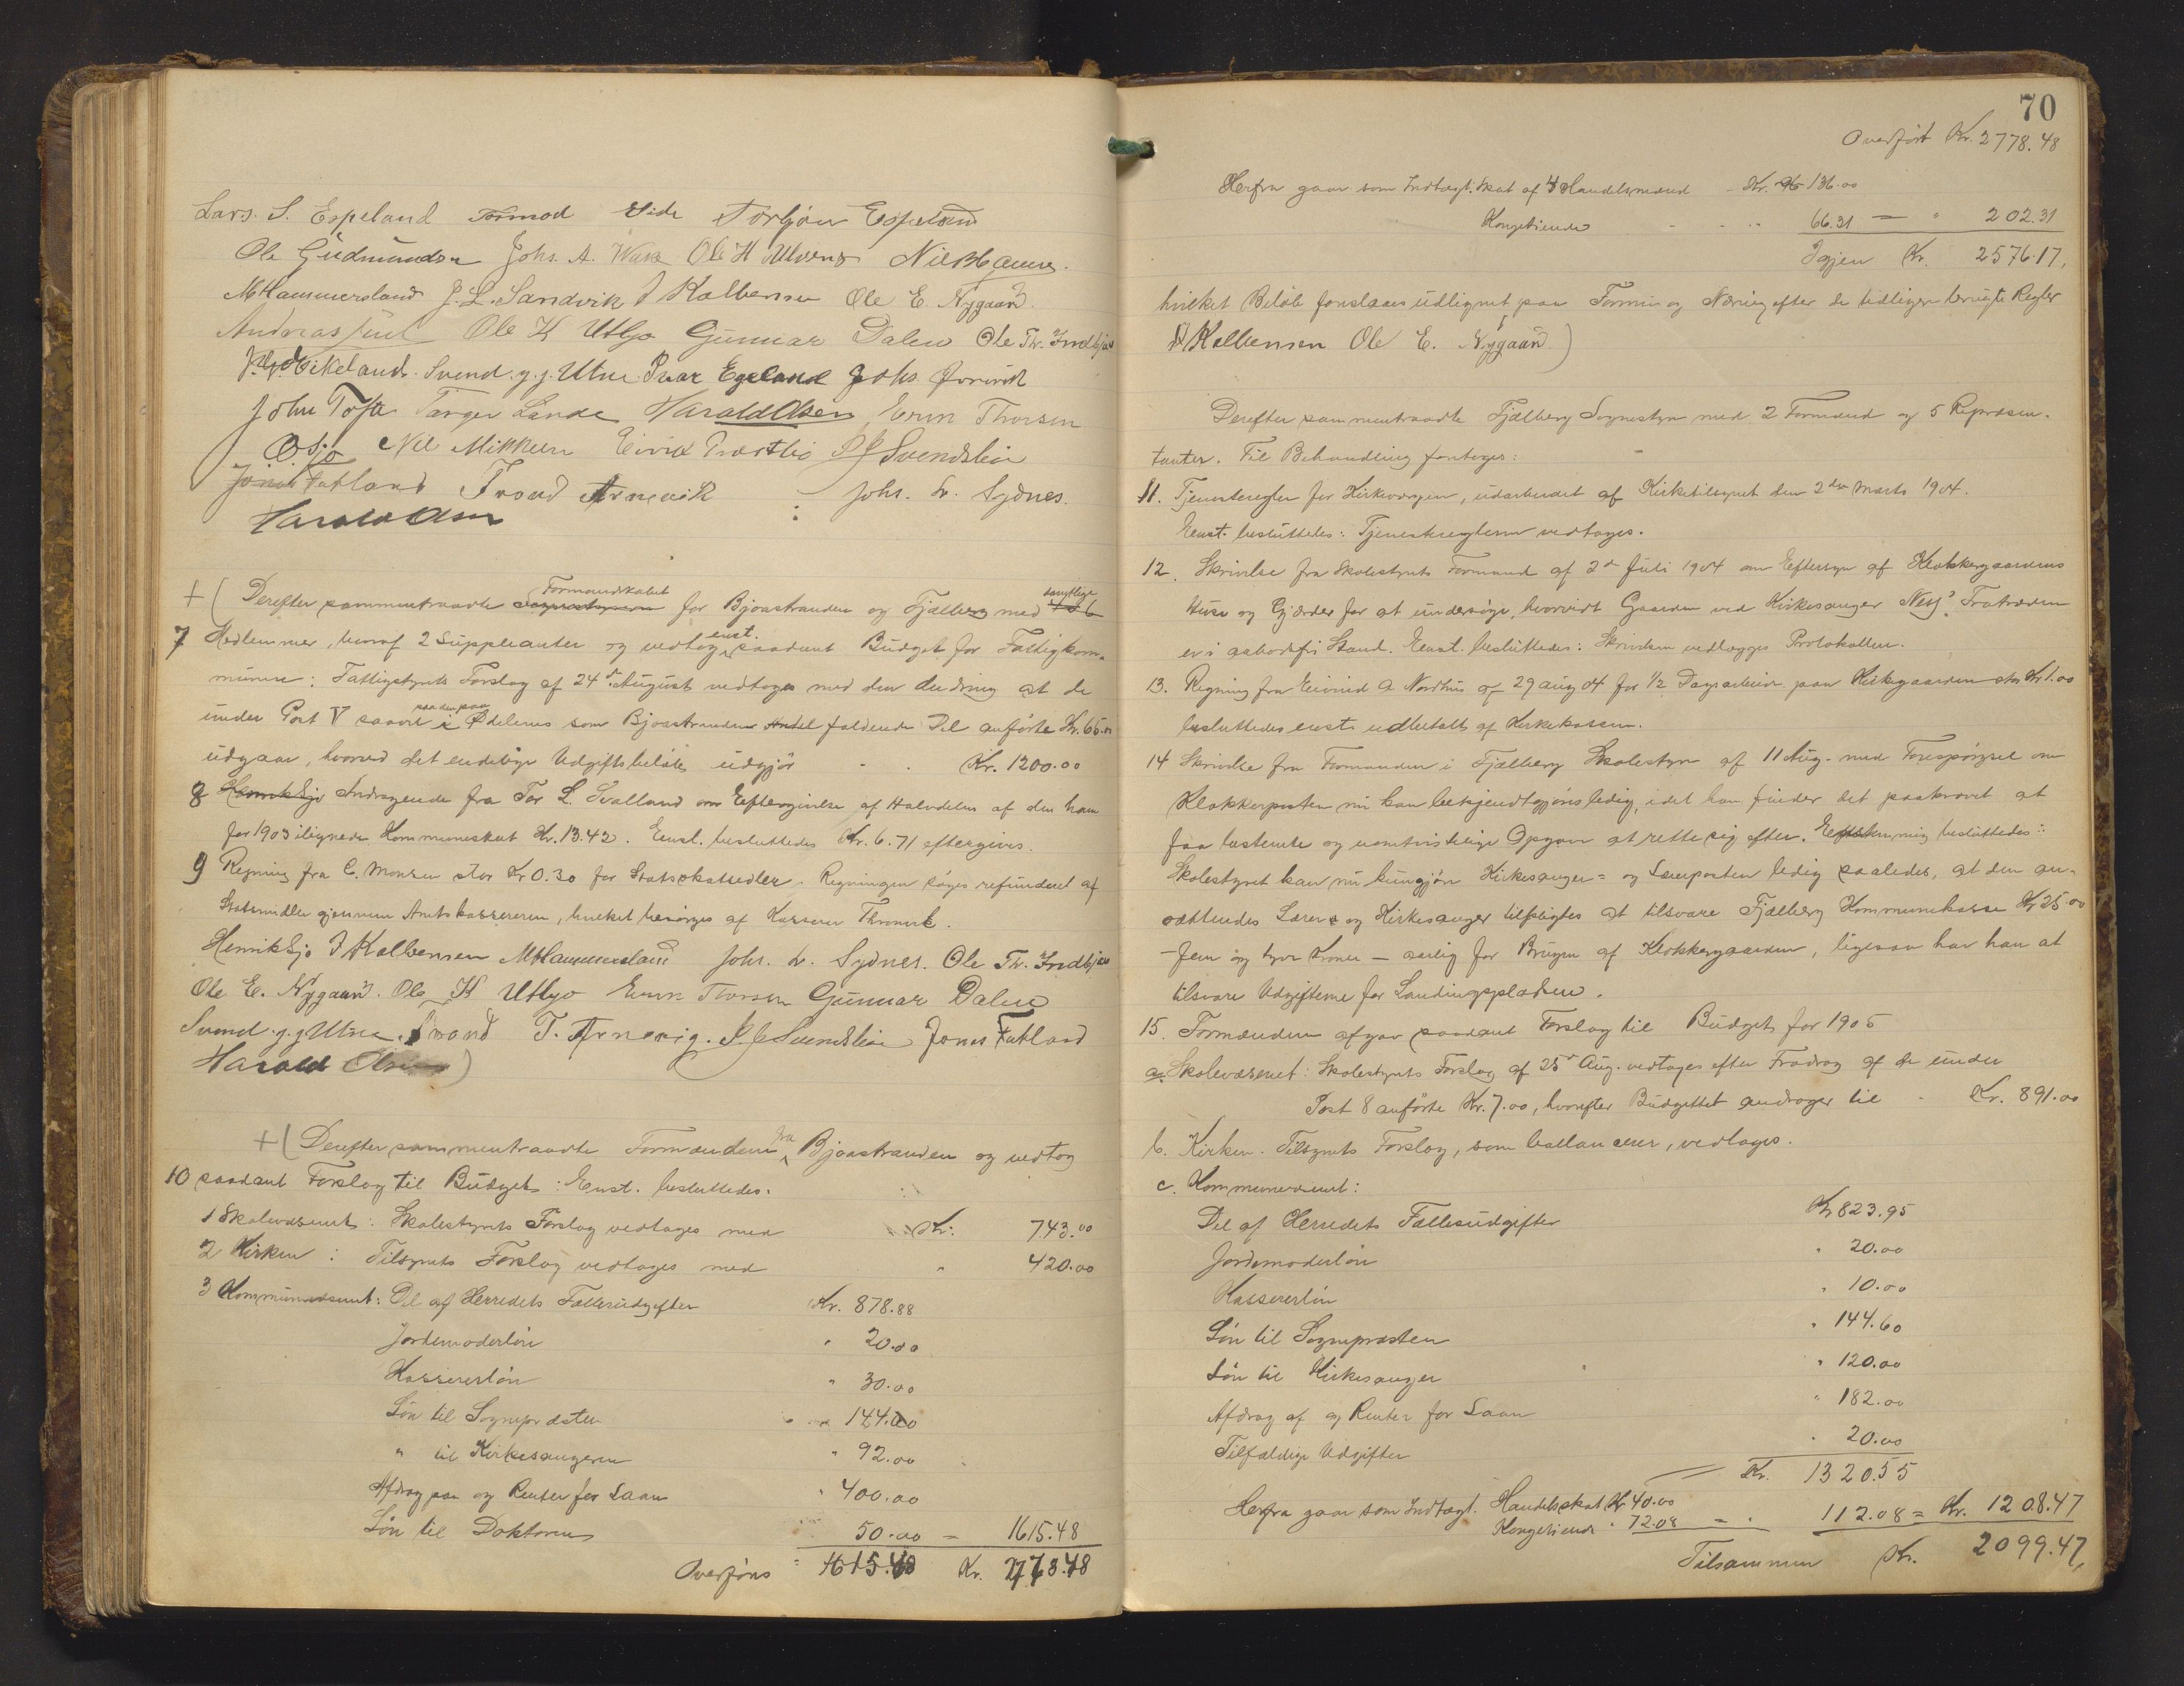 Lars. S. Espeland Tormod Eide Torbjørn Espeland
Ole Gudmundsen Johs. A. Ole H Ulvenes
M Hammersland J. L. Sandvik J Kalvenæs Ole E. Nygaard.
Andreas Juul Ole K Utbjo Gunnar Dalen Ole Th. Indbjo
Vikeland. Svend. g. j. Utne. Ivar Egeland Johs
John Tofte Torger Lande Harald Olsen Enin Thorsen
O. Sjo Nil Mikkelsen Eivind Svendsbøe
Jonas Fatland Trond Arnevik Johs. L. Sydnes.
Harald Olsen
+ ( Derefter sammentraadte Formandskabet for Bjoastranden og Fjælberg med samtlige
7 Medlemmer, hvoraf 2 Suppleanter og vedtog enst. saadant Budget for Fattigkom-
munen: Fattigstyrets Forslag af 24de August vedtoges med den Ændring at de
under Post V paa den paa Ølens som Bjoastranden faldende Del anførte Kr. 65.00
udgaar, hvorved det endelige Udgiftsbeløb udgjør - - Kr. 1200.00
8 Henrik Sjo Andragende fra Tor L. Svalland om Eftergivelse af Halvdelen af den ham
for 1903 ilignede Kommuneskat Kr. 13.42. Enst. besluttedes Kr. 6.71 eftergives.
9 Regning fra C. Monsen stor Kr 0.30 for Statsskatsedler. Regningen søges refunderet af
Statsmidler gjennem Amtskassereren, hvilket besørges af Kasserer
Henrik Sjo J Kalvenæs M Hammersland Johs. L. Sydnes. Ole Th. Indbjo
Ole E. Nygaard. Ole K Utbjo Enin Thorsen Gunnar Dalen
Svend. g. j Utne. Trond T. Arnevig. Svendsbøe Jonas Fatland
Harald Olsen )
+ ( Derefter sammentraadte Formændene fra Bjoastranden og vedtog
10 saadant Forslag til Budget: Enst. besluttedes.
1 Skolevæsenet: Skolestyrets Forslag vedtages med Kr: 743.00
2 Kirken: Tilsynets Forslag vedtages med " 420.00
3 Kommunevæsenet: Del af Herredets Fællesudgifter Kr. 878.88
Jordemoderløn " 20.00
Kassererløn " 30.00
Løn til Sognepræsten " 144.60
" til Kirkesangeren " 92.00
Afdrag paa og Renter for Laan " 400.00
Løn til Doktoren 50.00 = 1615.48
Overføres = 1615.48 Kr. 2778.48
70
Overført Kr. 2778.48
Herfra gaar som Indtægt: Skat af 4 Handelsmænd - Kr. 136.00
Kongetiende - - - 66.31 = " 202.31
Igjen Kr. 2576.17,
hvilket Beløb foreslaaes udlignet paa Formue og Næring efter de tidligere brugte Regler
J Kalvenæs Ole E. Nygaard )
Derefter sammentraadte Fjælberg Sognestyre med 2 Formænd og 5 Repræsen-
tanter. Til Behandling foretoges:
11. Tjenesteregler for Kirkevergen, udarbeidet af Kirketilsynet den 2den Marts 1904.
Enst. besluttedes: Tjenestereglerne vedtages.
12. Skrivelse fra Skolestyrets Formand af 2de Juli 1904 om Eftersyn af Klokkergaardens
Huse og Gjærder for at undersøge, hvorvidt Gaarden ved Kirkesanger Fratræden
er i aabodsfri Stand. Enst. besluttedes: Skrivelsen vedlægges Protokollen.
13. Regning fra Eivind A Nordhus af 29 aug 04 for 1/2 Dagsarbeide paa Kirkegaarden stor Kr 1.00
besluttedes enst. udbetalt af Kirkekassen.
14 Skrivelse fra Formanden i Fjælberg Skolestyre af 11 Aug. med Forespørgsel om
Klokkerposten nu kan bekjendtgjøres ledig, idet han finder det paakrævet at
faa bestemte og uomtvistelige Opgaver at rette sig efter. Enstemmig besluttedes:
Skolestyret kan nu kungjøre Kirkesanger- og Lærerposten ledig saaledes, at den an-
sættendes Lærer og Kirkesanger tilpligtes at tilsvare Fjælberg Kommunekasse Kr 25.00
- fem og tyve Kroner - aarlig for Brugen af Klokkergaarden, ligesaa har han at
tilsvare Udgifterne for Landingspladsen.
15. Formændene afgav saadant Forslag til Budget for 1905
a. Skolevæsenet: Skolestyrets Forslag af 25de Aug. vedtages efter Fradrag af de under
Post 8 anførte Kr. 7.00, hvorefter Budgettet andrager til - Kr. 891.00
b. Kirken. Tilsynets Forslag, som ballancerer, vedtages.
c. Kommunevæsenet:
Del af Herredets Fællesudgifter Kr 823.95
Jordemoderløn " 20.00
Kassererløn " 10.00
Løn til Sognepræsten " 144.60
Løn til Kirkesanger " 120.00
Afdrag af og Renter for Laan " 182.00
Tilfældige Udgifter " 20.00
Kr. 1320.55
Herfra gaar som Indtægt. Handelsskat Kr 40.00
Kongetiende " 72.08 = " 112.08 = Kr. 1208.47
Tilsammen Kr. 2099.47,